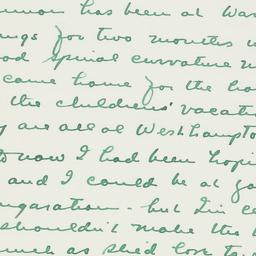 has been at War
ings for two months
spinal curvature
come home for the ho
the childrens' vacati
are all at Westhampto
to now I had been hopi
and I could be at
guration - but I'm ce
shouldn't make the t
much as she'd love to